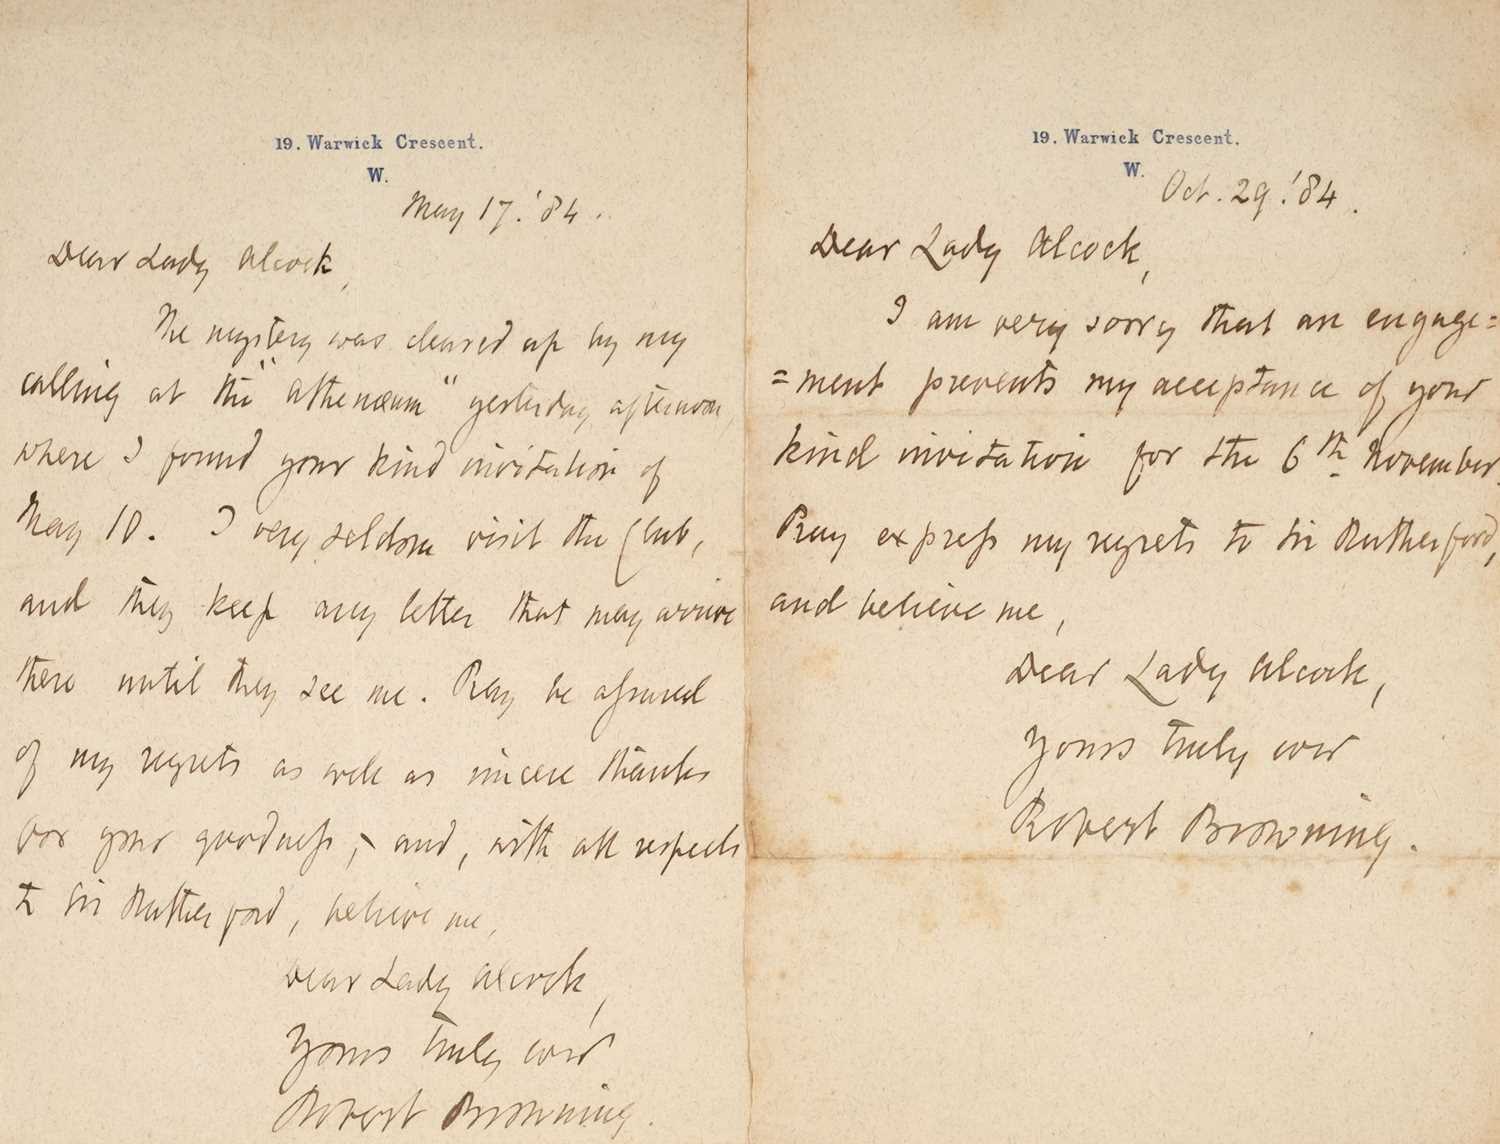 19. Warwick Crescent.
W.
May 17. '84.
Dear Lady Alcock,
The mystery was cleared up by my
calling at the "Athenæum" yesterday afternoon,
where I found your kind invitation of
May 10. I very seldom visit the Club,
and they keep any letter that may arrive
there until they see me. Pray be assured
of my regrets as well as sincere thanks
for your goodness, – and, with all respects
to Sir Rutherford, believe me,
Dear Lady Alcock,
Yours truly ever
Robert Browning.
19. Warwick Crescent.
W.
Oct. 29. '84.
Dear Lady Alcock,
I am very sorry that an engage=
=ment prevents my acceptance of your
kind invitation for the 6th November.
Pray express my regrets to Sir Rutherford,
and believe me,
Dear Lady Alcock,
Yours truly ever
Robert Browning.